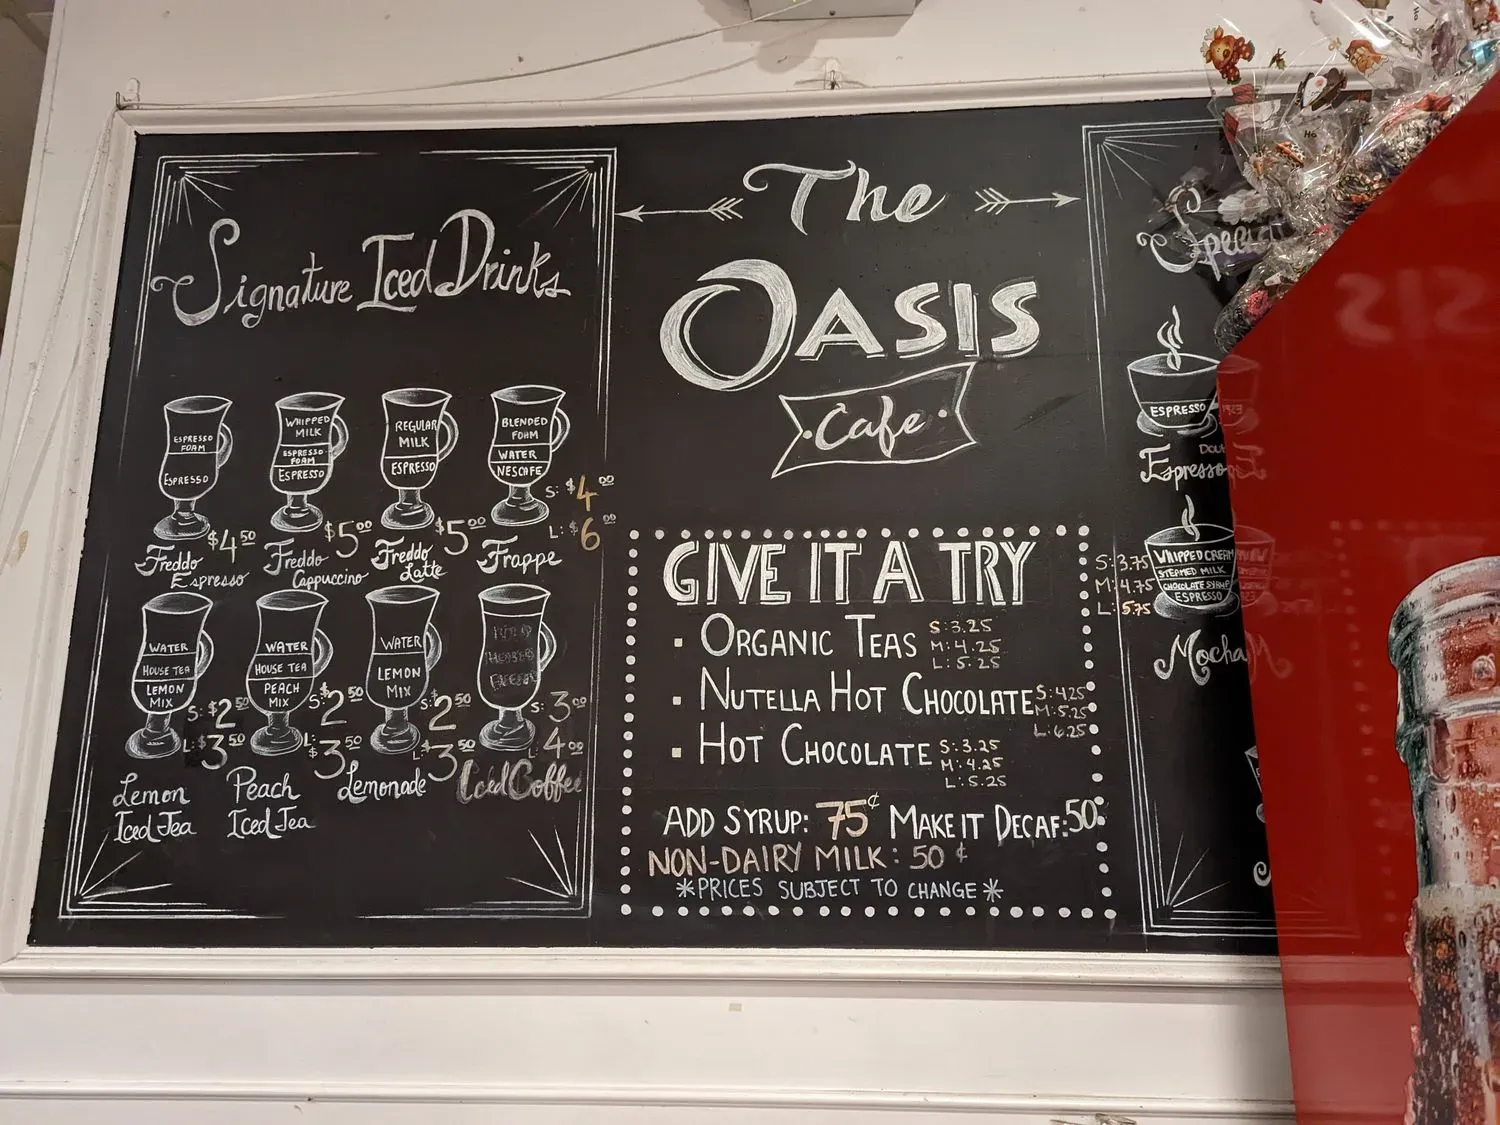 Signature Iced Drinks
ESPRESSO
FOAM
ESPRESSO
$4.50
Freddo
Espresso
WHIPPED
MILK
ESPRESSO
FOAM
ESPRESSO
$5.00
Freddo
Cappuccino
REGULAR
MILK
ESPRESSO
$5.00
Freddo
Latte
BLENDED
FOAM
WATER
NESCAFE
S: $4.00
L: $6.00
Frappe
WATER
HOUSE TEA
LEMON
MIX
S: $2.50
L: $3.50
Lemon
Iced Tea
WATER
HOUSE TEA
PEACH
MIX
S: $2.50
L: $3.50
Peach
Iced Tea
WATER
LEMON
MIX
S: $2.50
L: $3.50
Lemonade
S: 3.00
L: 4.00
Iced Coffee
The
OASIS
Cafe
GIVE IT A TRY
· ORGANIC TEAS S: 3.25
M: 4.25
L: 5.25
· NUTELLA HOT CHOCOLATE S: 4.25
M: 5.25
L: 6.25
· HOT CHOCOLATE S: 3.25
M: 4.25
L: 5.25
ADD SYRUP: 75¢ MAKE IT DECAF: 50¢
NON-DAIRY MILK: 50¢
*PRICES SUBJECT TO CHANGE*
ESPRESSO
Espresso
S: 3.75
M: 4.75
L: 5.75
WHIPPED CREAM
STEAMED MILK
CHOCOLATE SYRUP
ESPRESSO
Mocha